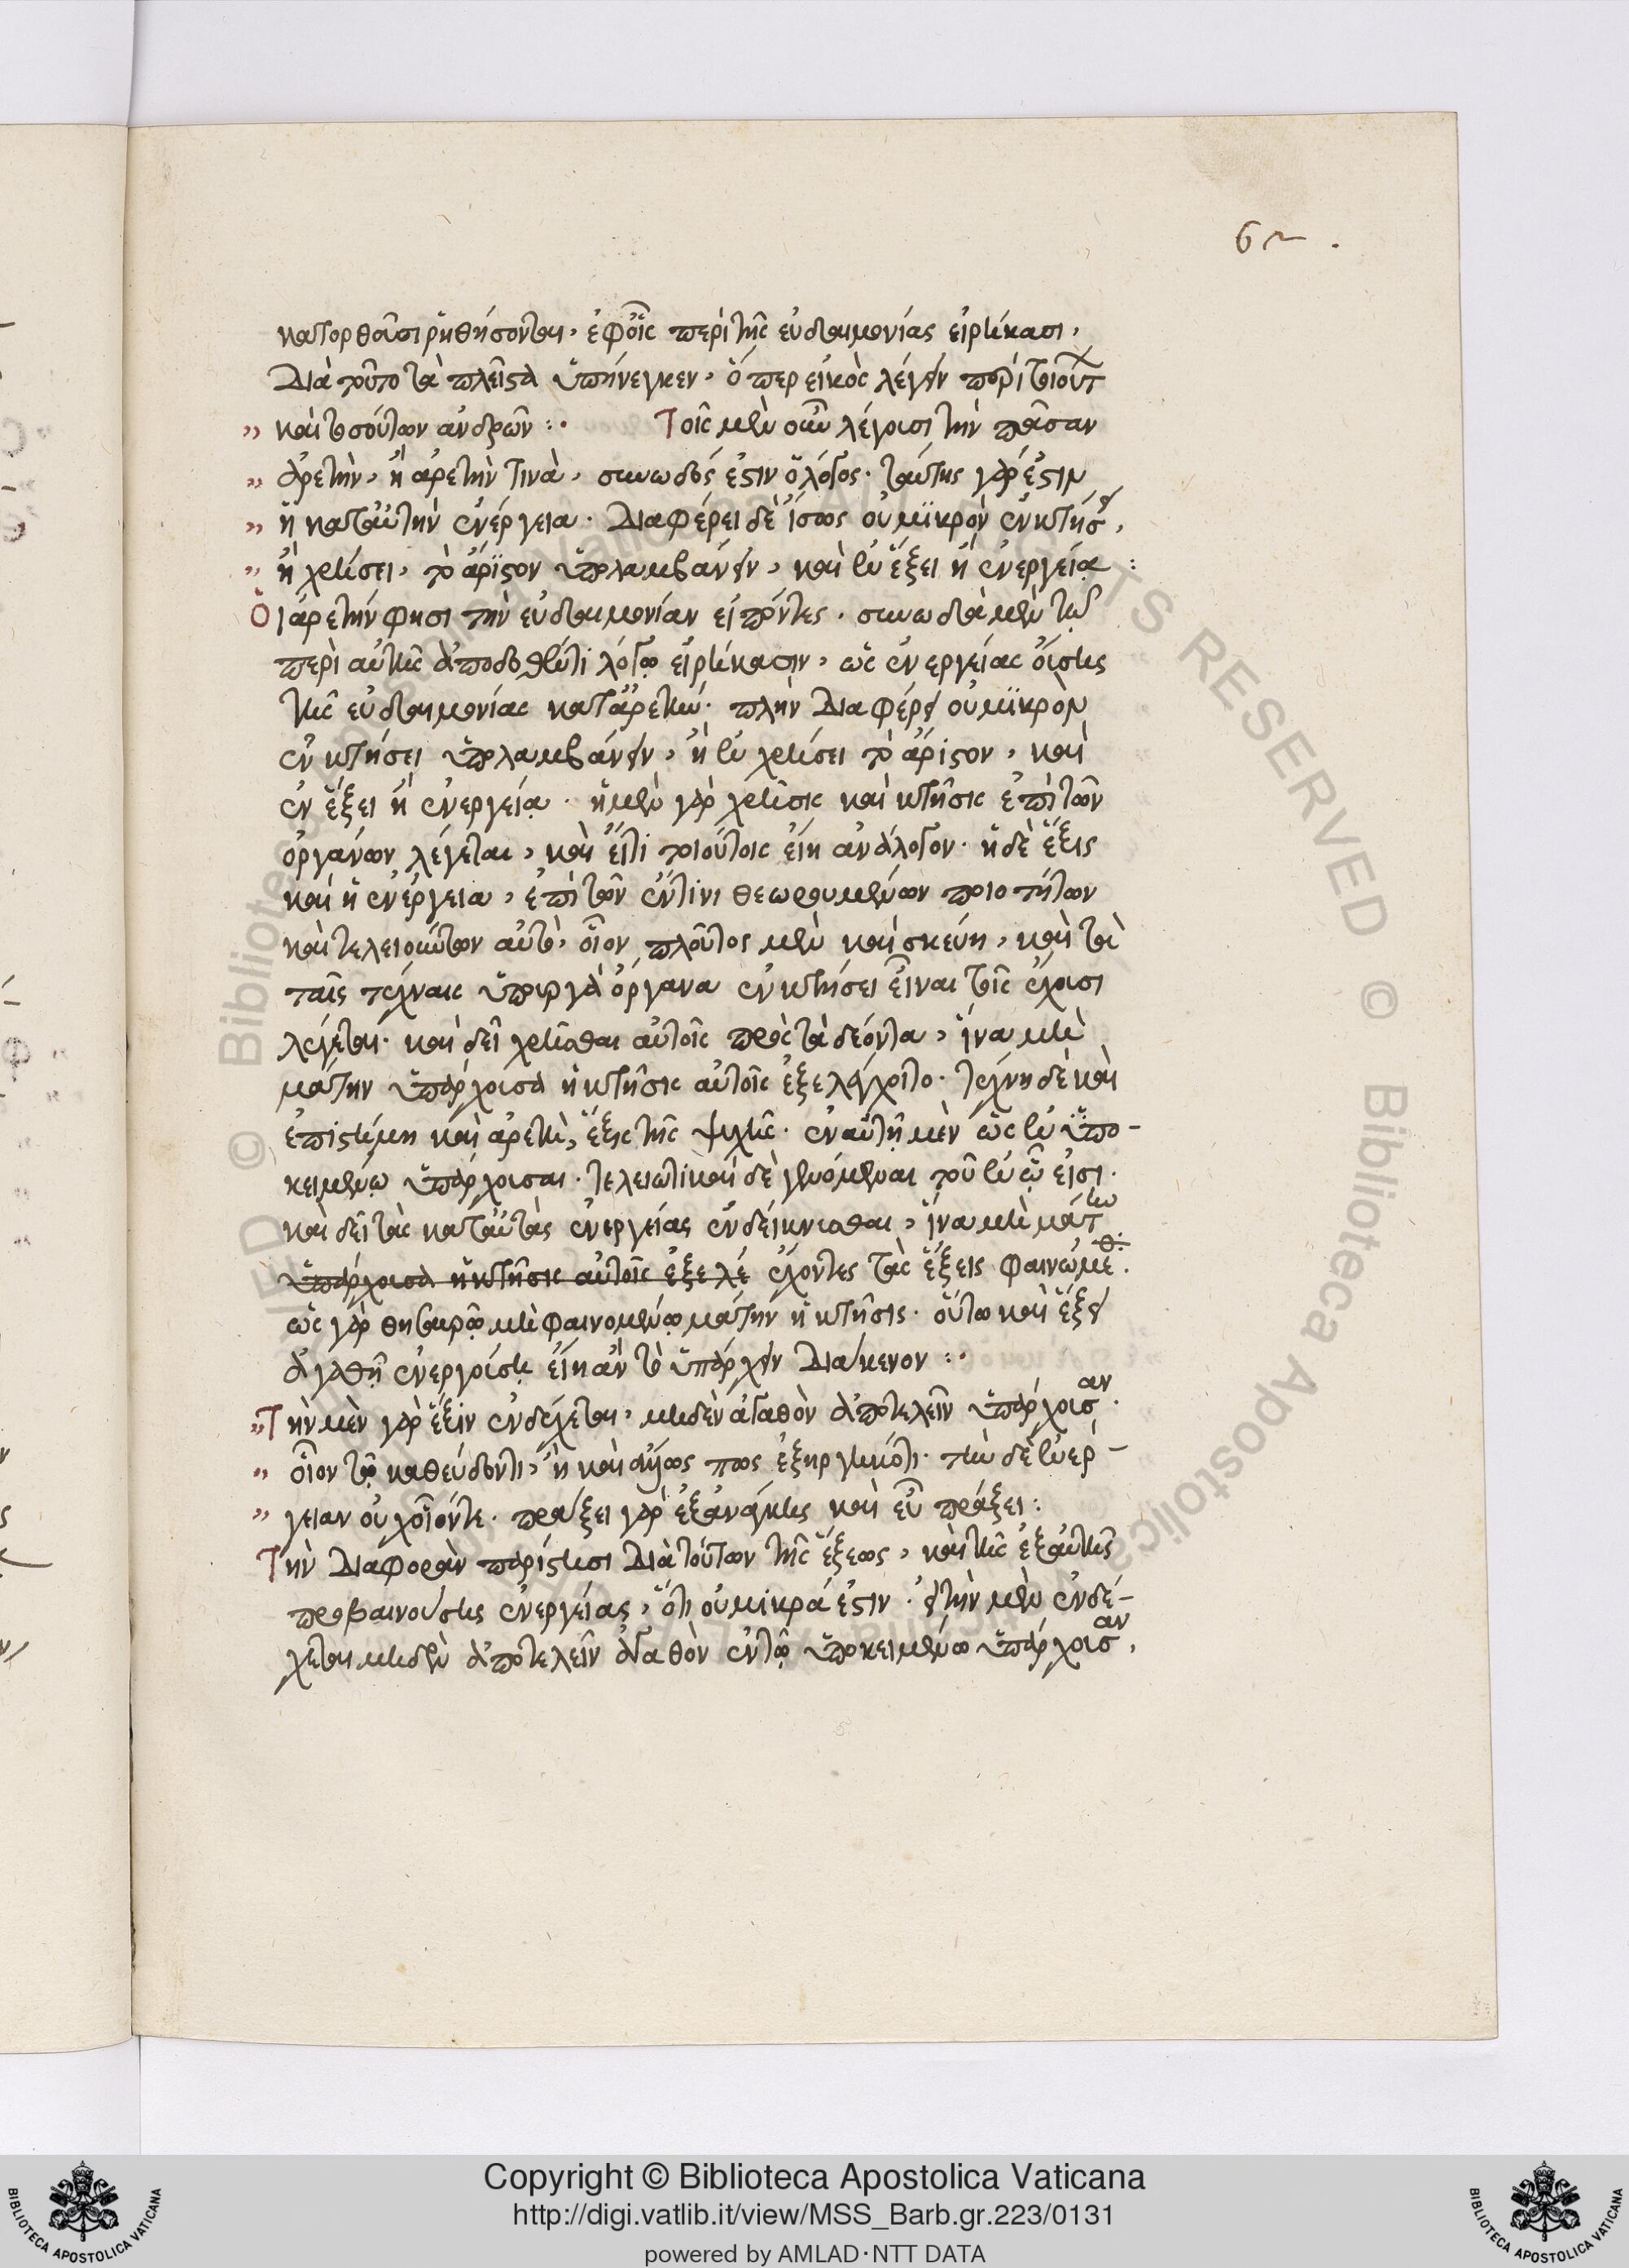 62 .
κατορθοῦσι ῥηθήσονται, ἐφοἷς περὶ τῆς εὐδαιμονίας εἰρήκασι,
Διὰ τοῦτο τὰ πλεῖστα ὑπήνεγκεν, ὅπερ εἰκὸς λέγειν περὶ τοιούτ
καὶ τοσούτων ἀνδρῶν :· Τοῖς μὲν οὖν λέγουσι τὴν πᾶσαν
ἀρετὴν, ἢ ἀρετὴν τινὰ, συνωδός ἐστιν ὁ λόγος· ταύτης γάρ ἐστιν
ἡ κατ' αὐτὴν ἐνέργεια· Διαφέρει δὲ ἴσως οὐ μικρὸν ἐν κτήσει,
ἢ χρήσει, τὸ ἄριστον ὑπολαμβάνειν, καὶ ἐν ἕξει ἢ ἐνεργείᾳ :
Οἱ ἀρετήν φησι τὴν εὐδαιμονίαν εἰπόντες· συνωδὰ μὲν τῷ
περὶ αὐτῆς ἀποδοθέντι λόγῳ εἰρήκασιν, ὡς ἐνεργείας οὔσης
τῆς εὐδαιμονίας κατ' ἀρετήν· πλὴν Διαφέρει οὐ μικρὸν
ἐν κτήσει ὑπολαμβάνειν, ἢ ἐν χρήσει τὸ ἄριστον, καὶ
ἐν ἕξει ἢ ἐνεργείᾳ· ἡ μὲν γὰρ χρῆσις καὶ κτῆσις ἐπὶ τῶν
ὀργάνων λέγεται, καὶ εἴ τι τοιούτοις εἴη ἀνάλογον· ἡ δὲ ἕξις
καὶ ἡ ἐνέργεια, ἐπὶ τῶν ἔν τινι θεωρουμένων ποιοτήτων
καὶ τελειούντων αὐτὸ, οἷον πλοῦτος μὲν καὶ σκεύη, καὶ τὰ
ταῖς τέχναις ὑπουργὰ ὄργανα ἐν κτήσει εἶναι τοῖς ἔχουσι
λέγεται· καὶ δεῖ χρῆσθαι αὐτοῖς πρὸς τὰ δέοντα, ἵνα μὴ
μάτην ὑπάρχουσα ἡ κτῆσις αὐτοῖς ἐξελέγχοιτο· τέχνη δὲ καὶ
ἐπιστήμη καὶ ἀρετὴ, ἕξις τῆς ψυχῆς· ἐν αὐτῇ μὲν ὡς ἐν ὑπο-
κειμένῳ ὑπάρχουσαι· τελειωτικαὶ δὲ γενόμεναι τοῦ ἐν ᾧ εἰσι·
καὶ δεῖ τὰς κατ' αὐτὰς ἐνεργείας ἐνδείκνυσθαι, ἵνα μὴ μάτην
ὑπάρχουσα ἡ κτῆσις αὐτοῖς ἐξελέ ἔχοντες τὰς ἕξεις φαινώμεθ.
ὡς γὰρ θησαυρῷ μὴ φαινομένῳ μάτην ἡ κτῆσις· οὕτω καὶ ἕξει
ἀγαθῇ ἐνεργούσῃ εἴη ἂν τὸ ὑπάρχειν Διάκενον :·
Τὴν μὲν γὰρ ἕξιν ἐνδέχεται, μηδὲν ἀγαθὸν ἀποτελεῖν ὑπάρχουσαν·
οἷον τῷ καθεύδοντι, ἢ καὶ ἄλλως πως ἐξηργηκότι· τὴν δὲ ἐνέρ-
γειαν οὐχ οἷόντε· πράξει γὰρ ἐξανάγκης καὶ εὖ πράξει :
Τὴν Διαφορὰν παρίστησι Διὰ τούτων τῆς ἕξεως, καὶ τῆς ἐξ αὐτῆς
προβαινούσης ἐνεργείας, ὅτι οὐ μικρά ἐστιν· εἰ τὴν μὲν ἐνδέ-
χεται μηδὲν ἀποτελεῖν ἀγαθὸν ἐν τῷ ὑποκειμένῳ ὑπάρχουσαν,
Copyright © Biblioteca Apostolica Vaticana
http://digi.vatlib.it/view/MSS_Barb.gr.223/0131
powered by AMLAD·NTT DATA